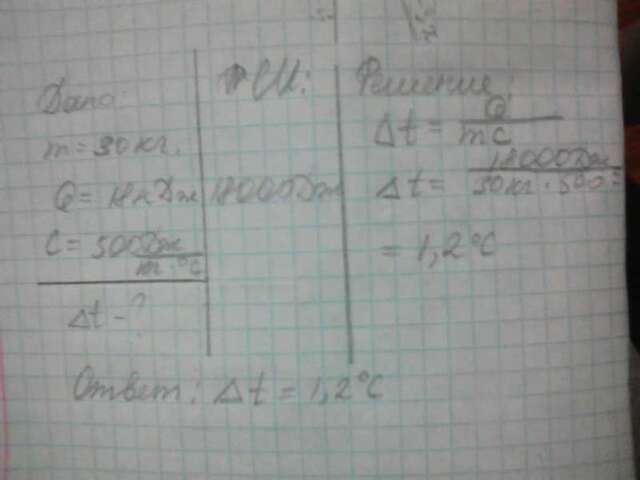 Дано:
m = 30 кг.
Q = 18 кДж
C = 500 Дж
m · °C
Δt - ?
СИ:
18000 Дж
Решение:
Δt = Q
mc
Δt = 18000 Дж
30 кг · 500 =
= 1,2°C
Ответ: Δt = 1,2°C